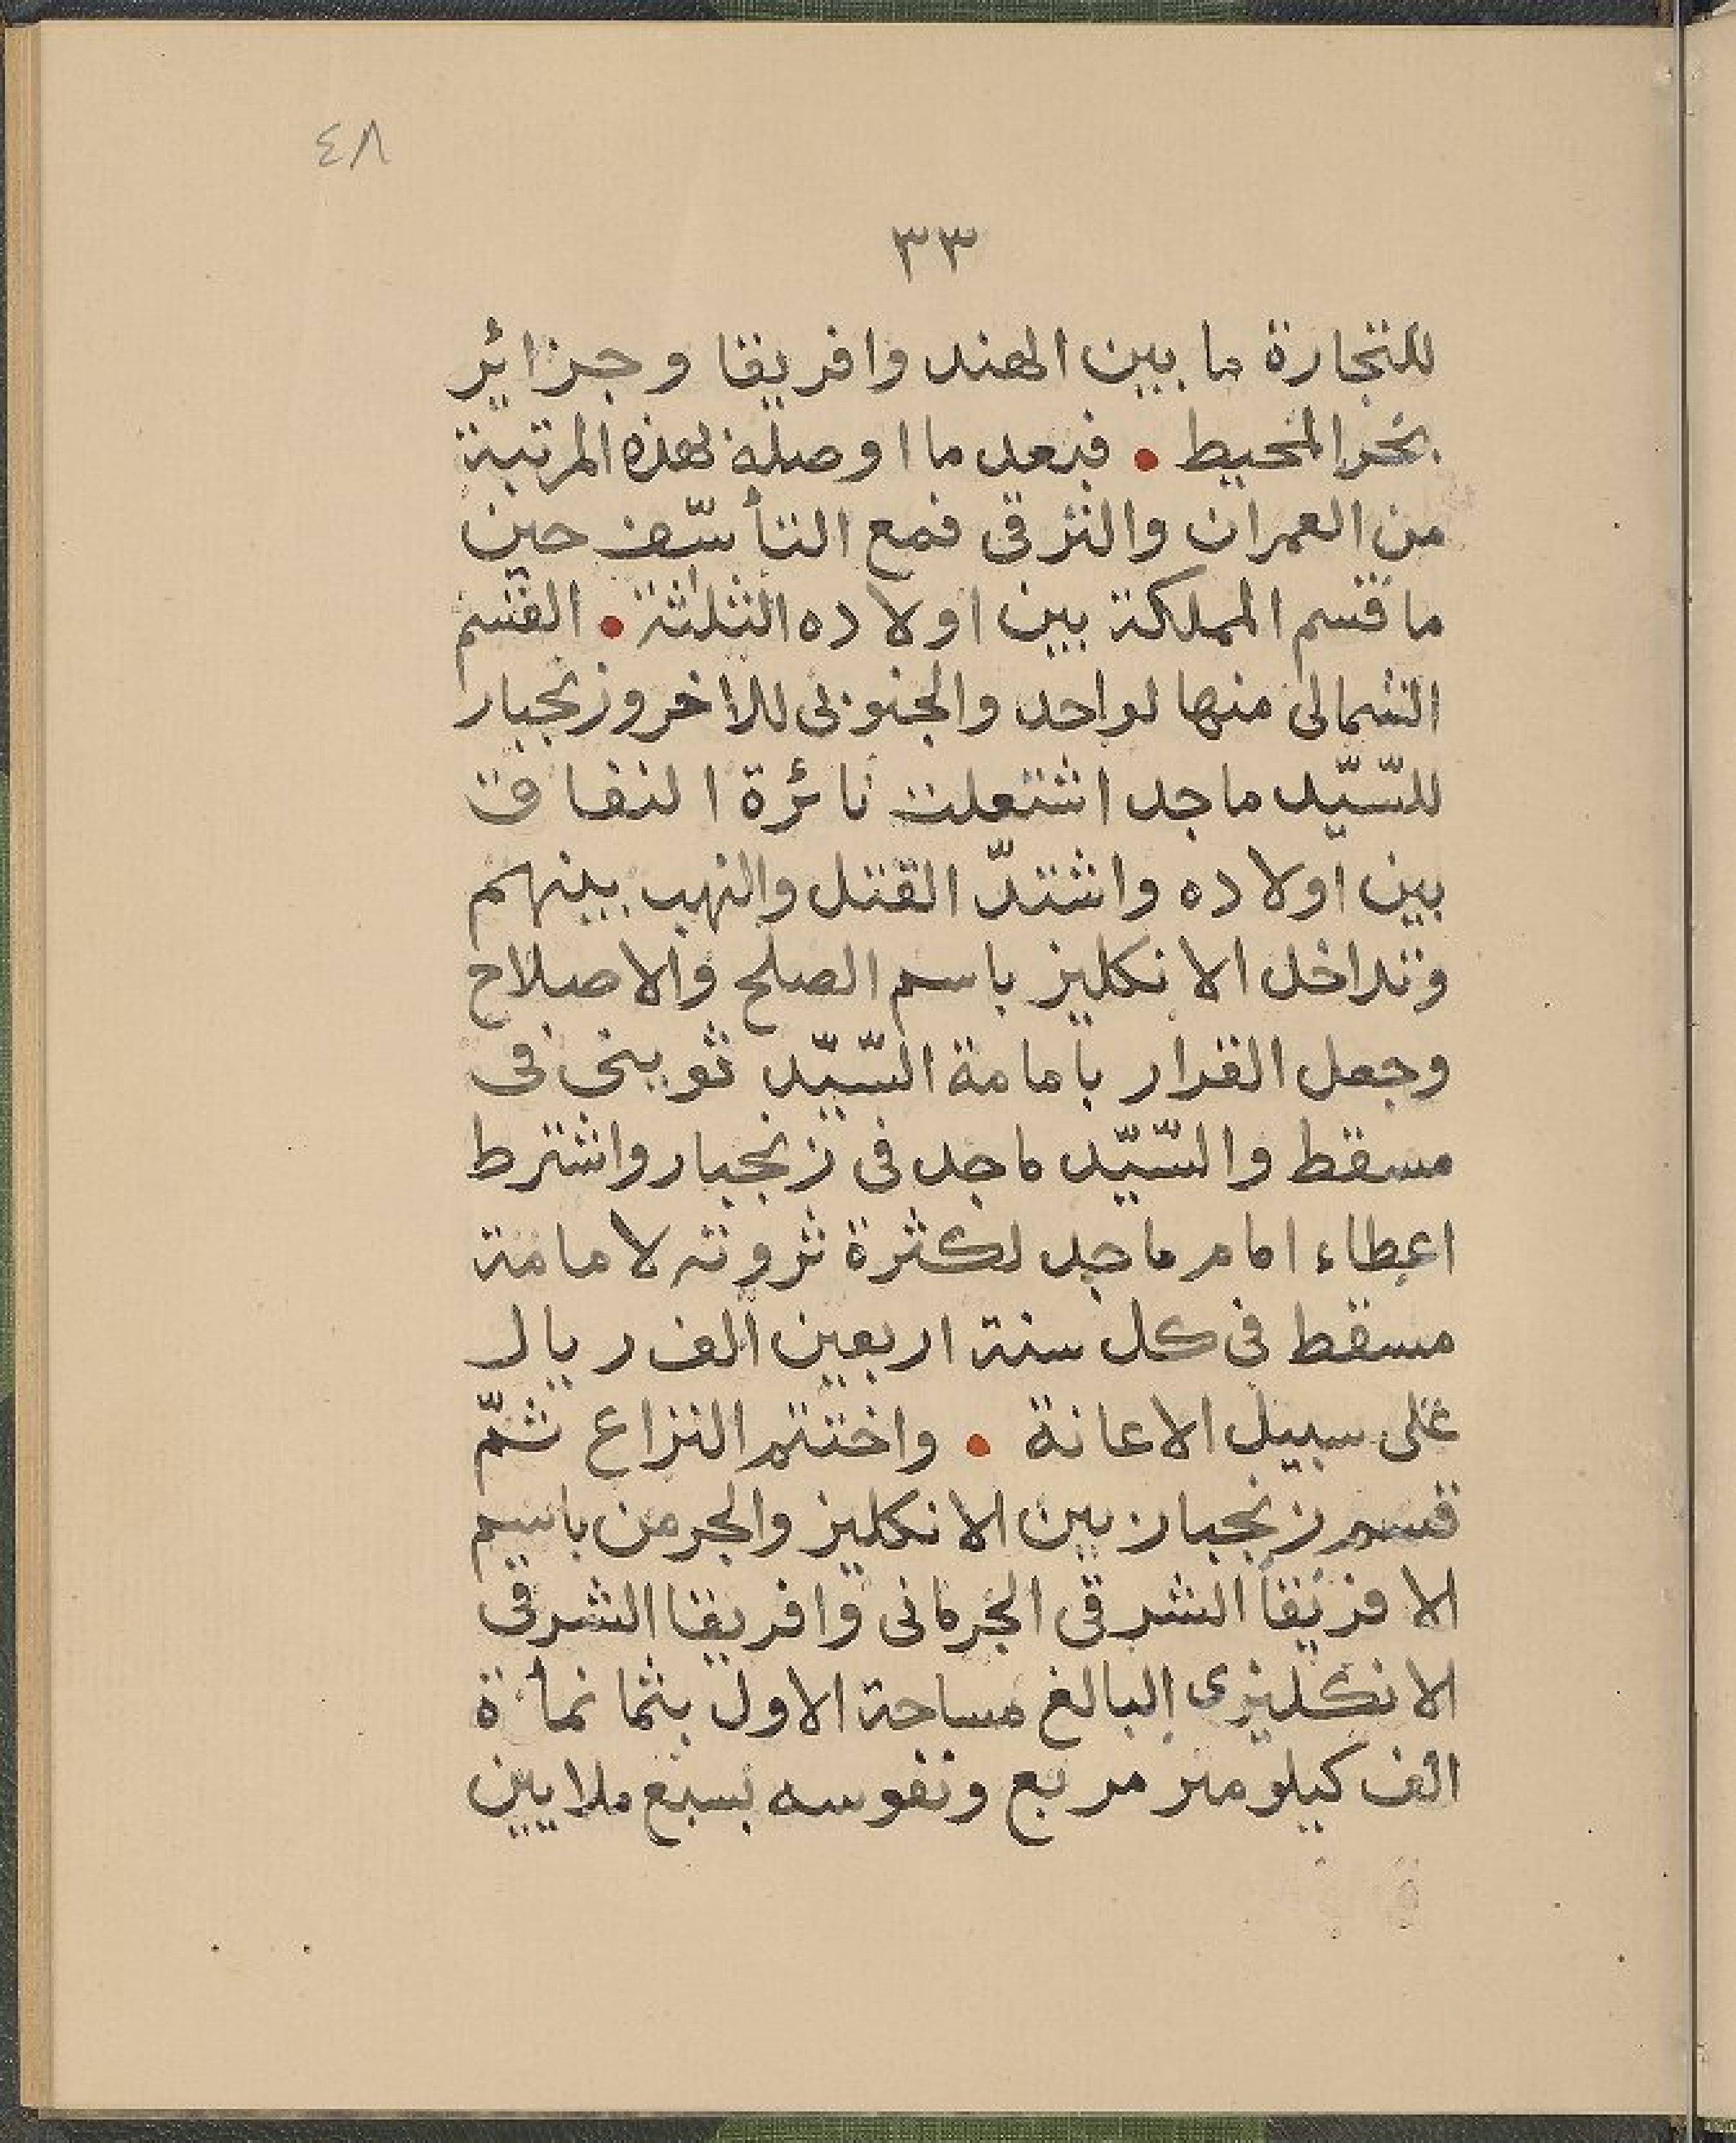 ٤٨
٣٣
للتجارة ما بين الهند وافريقا وجزائر
بحر المحيط • فبعد ما اوصله لهذه المرتبة
من العمران والترقى فمع التأسّف حين
ما قسم المملكة بين اولاده الثلثة • القسم
الشمالى منها لواحد والجنوبى للاخر وزنجبار
للسّيّد ماجد اشتعلت نائرة النفاق
بين اولاده واشتدّ القتل والنهب بينهم
وتداخل الانكليز باسم الصلح والاصلاح
وجعل القرار بامامة السّيّد ثوينى فى
مسقط والسّيّد ماجد فى زنجبار واشترط
اعطاء امام ماجد لكثرة ثروته لامامة
مسقط فى كل سنة اربعين الف ريال
على سبيل الاعانة • واختتم النزاع ثمّ
قسم زنجبار بين الانكليز والجرمن باسم
الافريقا الشرقى الجرمانى وافريقا الشرقى
الانكليزى البالغ مساحة الاول بثمانمأة
الف كيلومتر مربع ونفوسه بسبع ملايين